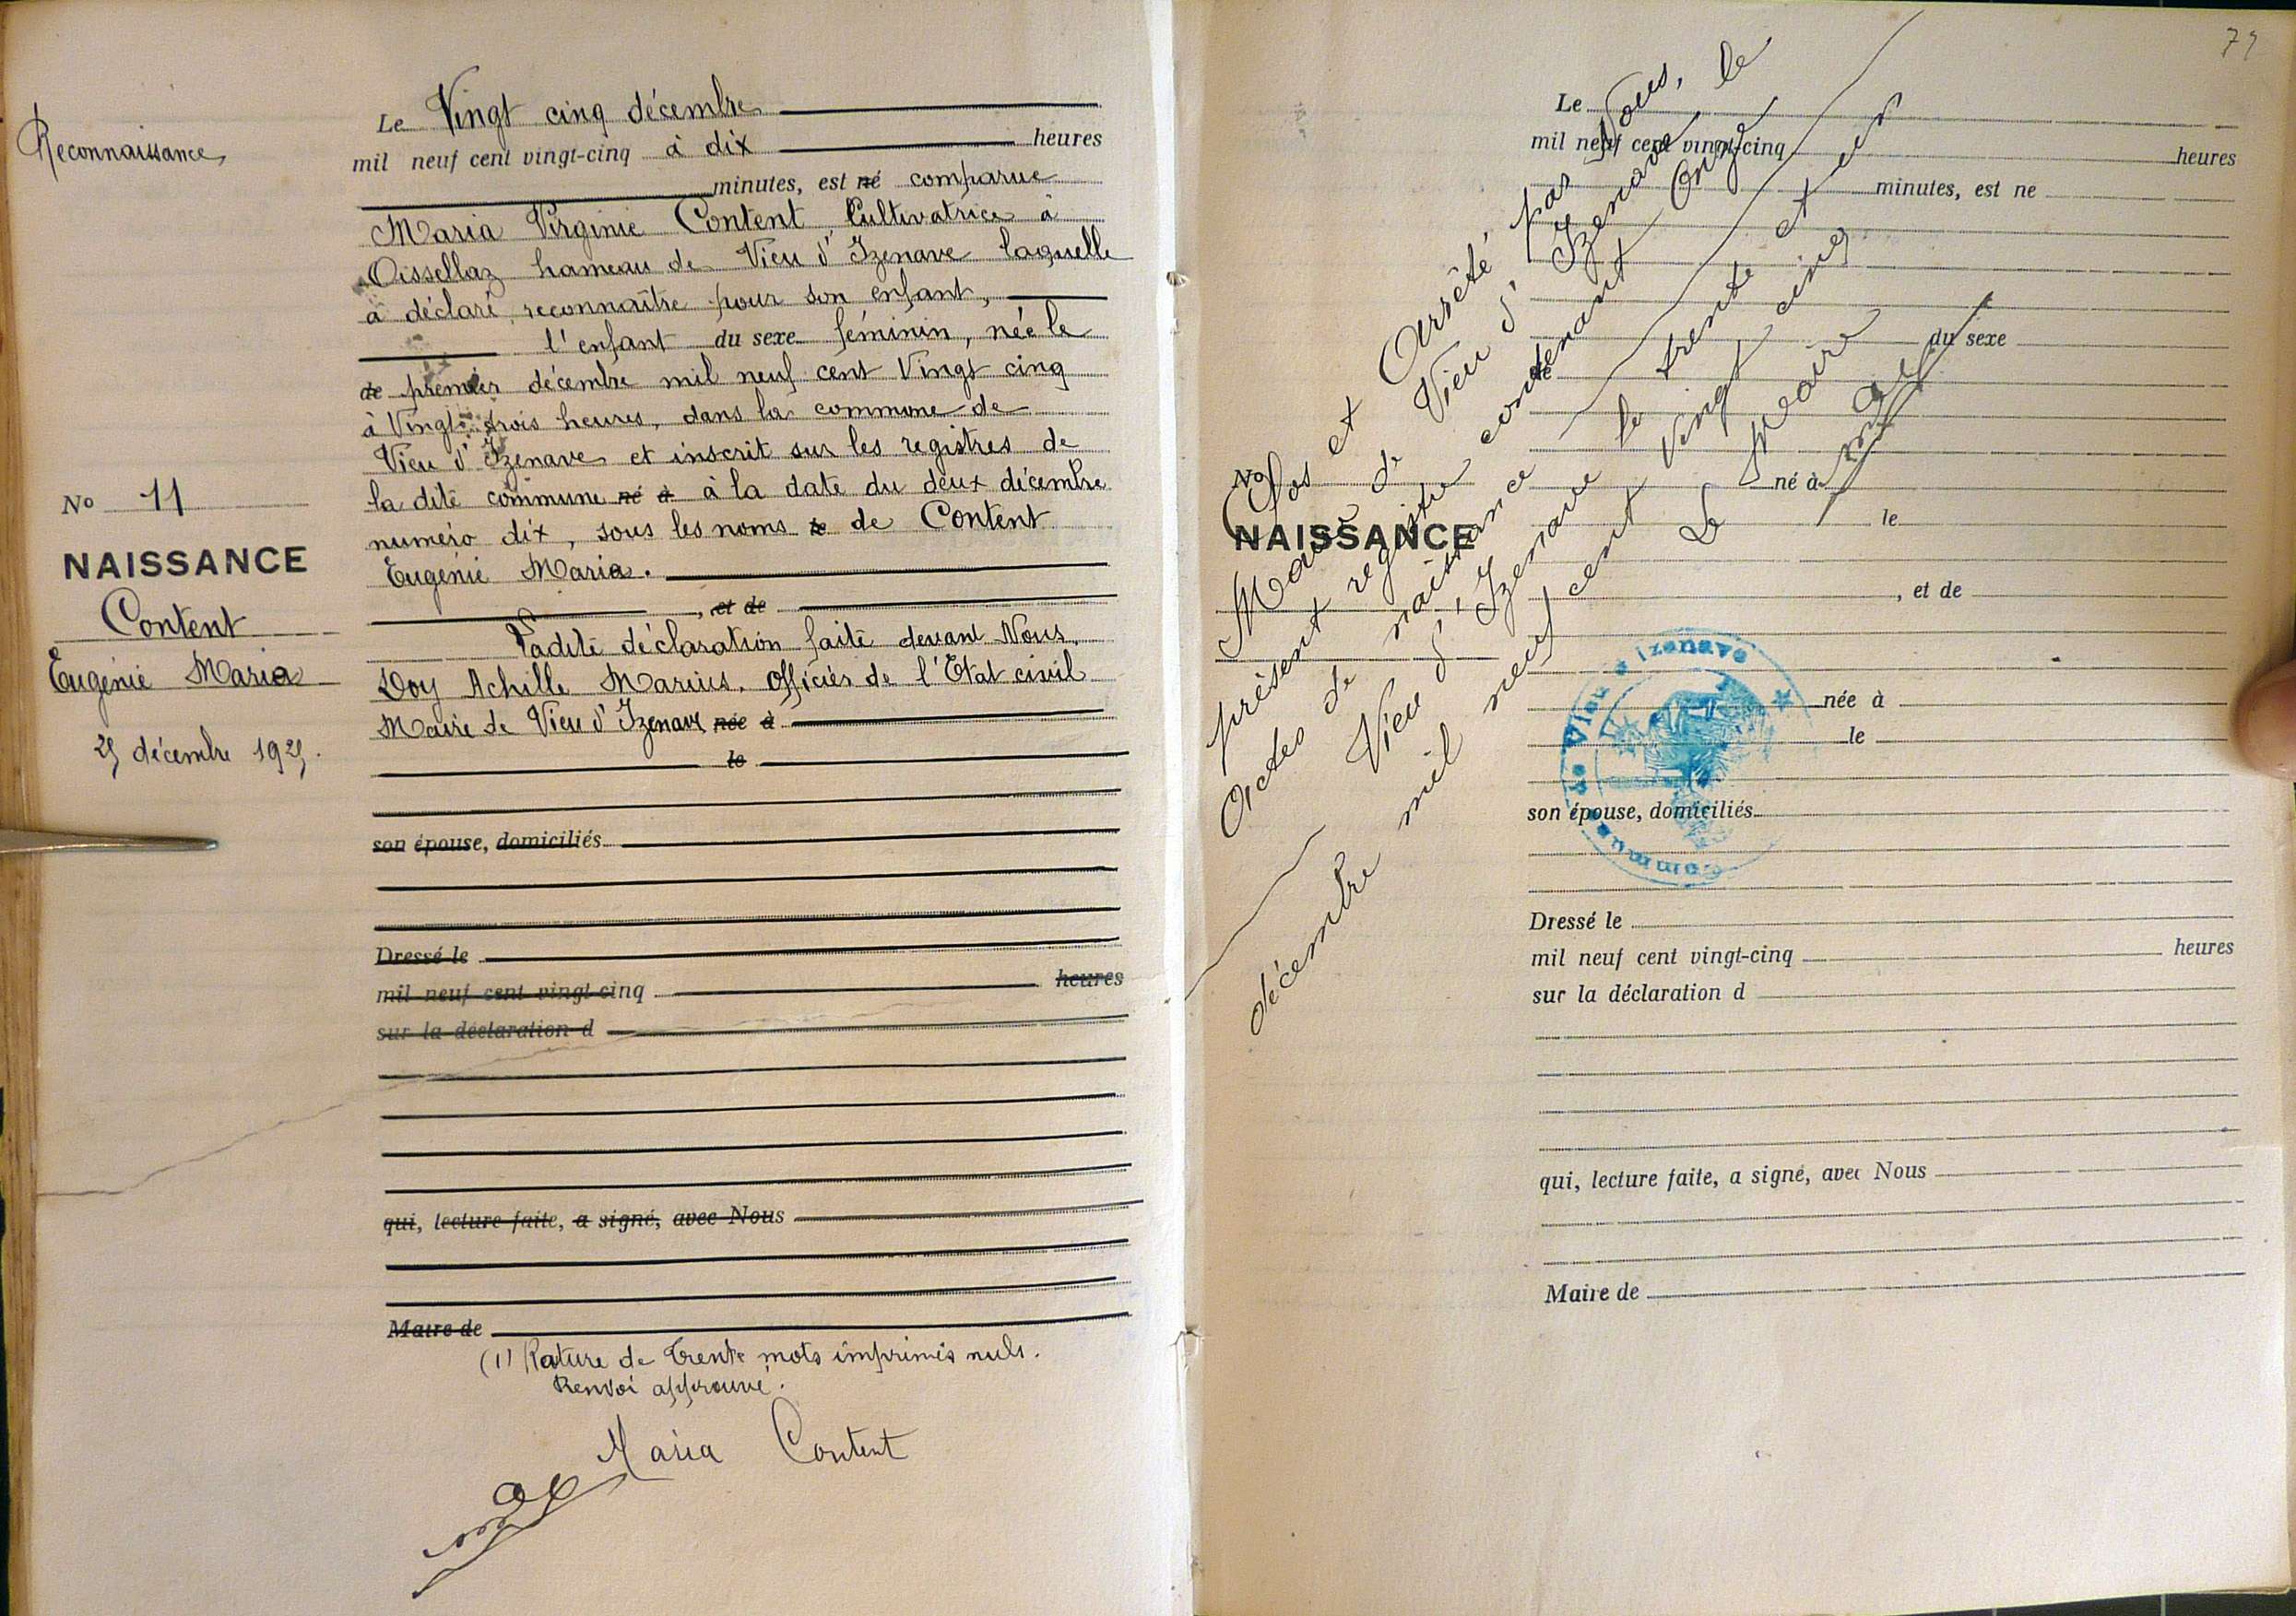 Reconnaissance
Le Vingt cinq décembre
mil neuf cent vingt-cinq à dix heures
minutes, est né comparue
Maria Virginie Content, Cultivatrice à
Oissellaz hameau de Vieu d'Izenave laquelle
a déclaré reconnaître pour son enfant,
l'enfant du sexe féminin, née le
de premier décembre mil neuf cent Vingt cinq
à Vingt trois heures, dans la commune de
Vieu d'Izenave et inscrit sur les registres de
la dite commune né à à la date du deux décembre
numéro dix, sous les noms de Content
Eugénie Maria.
, et de
Ladite déclaration faite devant Nous,
Doy Achille Marius, Officier de l'Etat civil
Maire de Vieu d'Izenave née à
le
son épouse, domiciliés
Dressé le
mil neuf cent vingt-cinq heures
sur la déclaration d
qui, lecture faite, a signé, avec Nous
Maire de
(1) Rature de Trente mots imprimés nuls.
Renvoi approuvé.
Maria Content
No 11
NAISSANCE
Content
Eugénie Maria
25 décembre 1925.
Le
mil neuf cent vingt-cinq heures
minutes, est né
du sexe
de
né à
le
, et de
née à
le
son épouse, domiciliés
Dressé le
mil neuf cent vingt-cinq heures
sur la déclaration d
qui, lecture faite, a signé, avec Nous
Maire de
No
NAISSANCE
Clos et Arrêté, par Nous, le
Maire de Vieu d'Izenave
présent registre contenant Onze
Actes de naissance
Vieu d'Izenave le trente et un
décembre mil neuf cent vingt cinq
Le Maire
Commune de Vieu d'Izenave